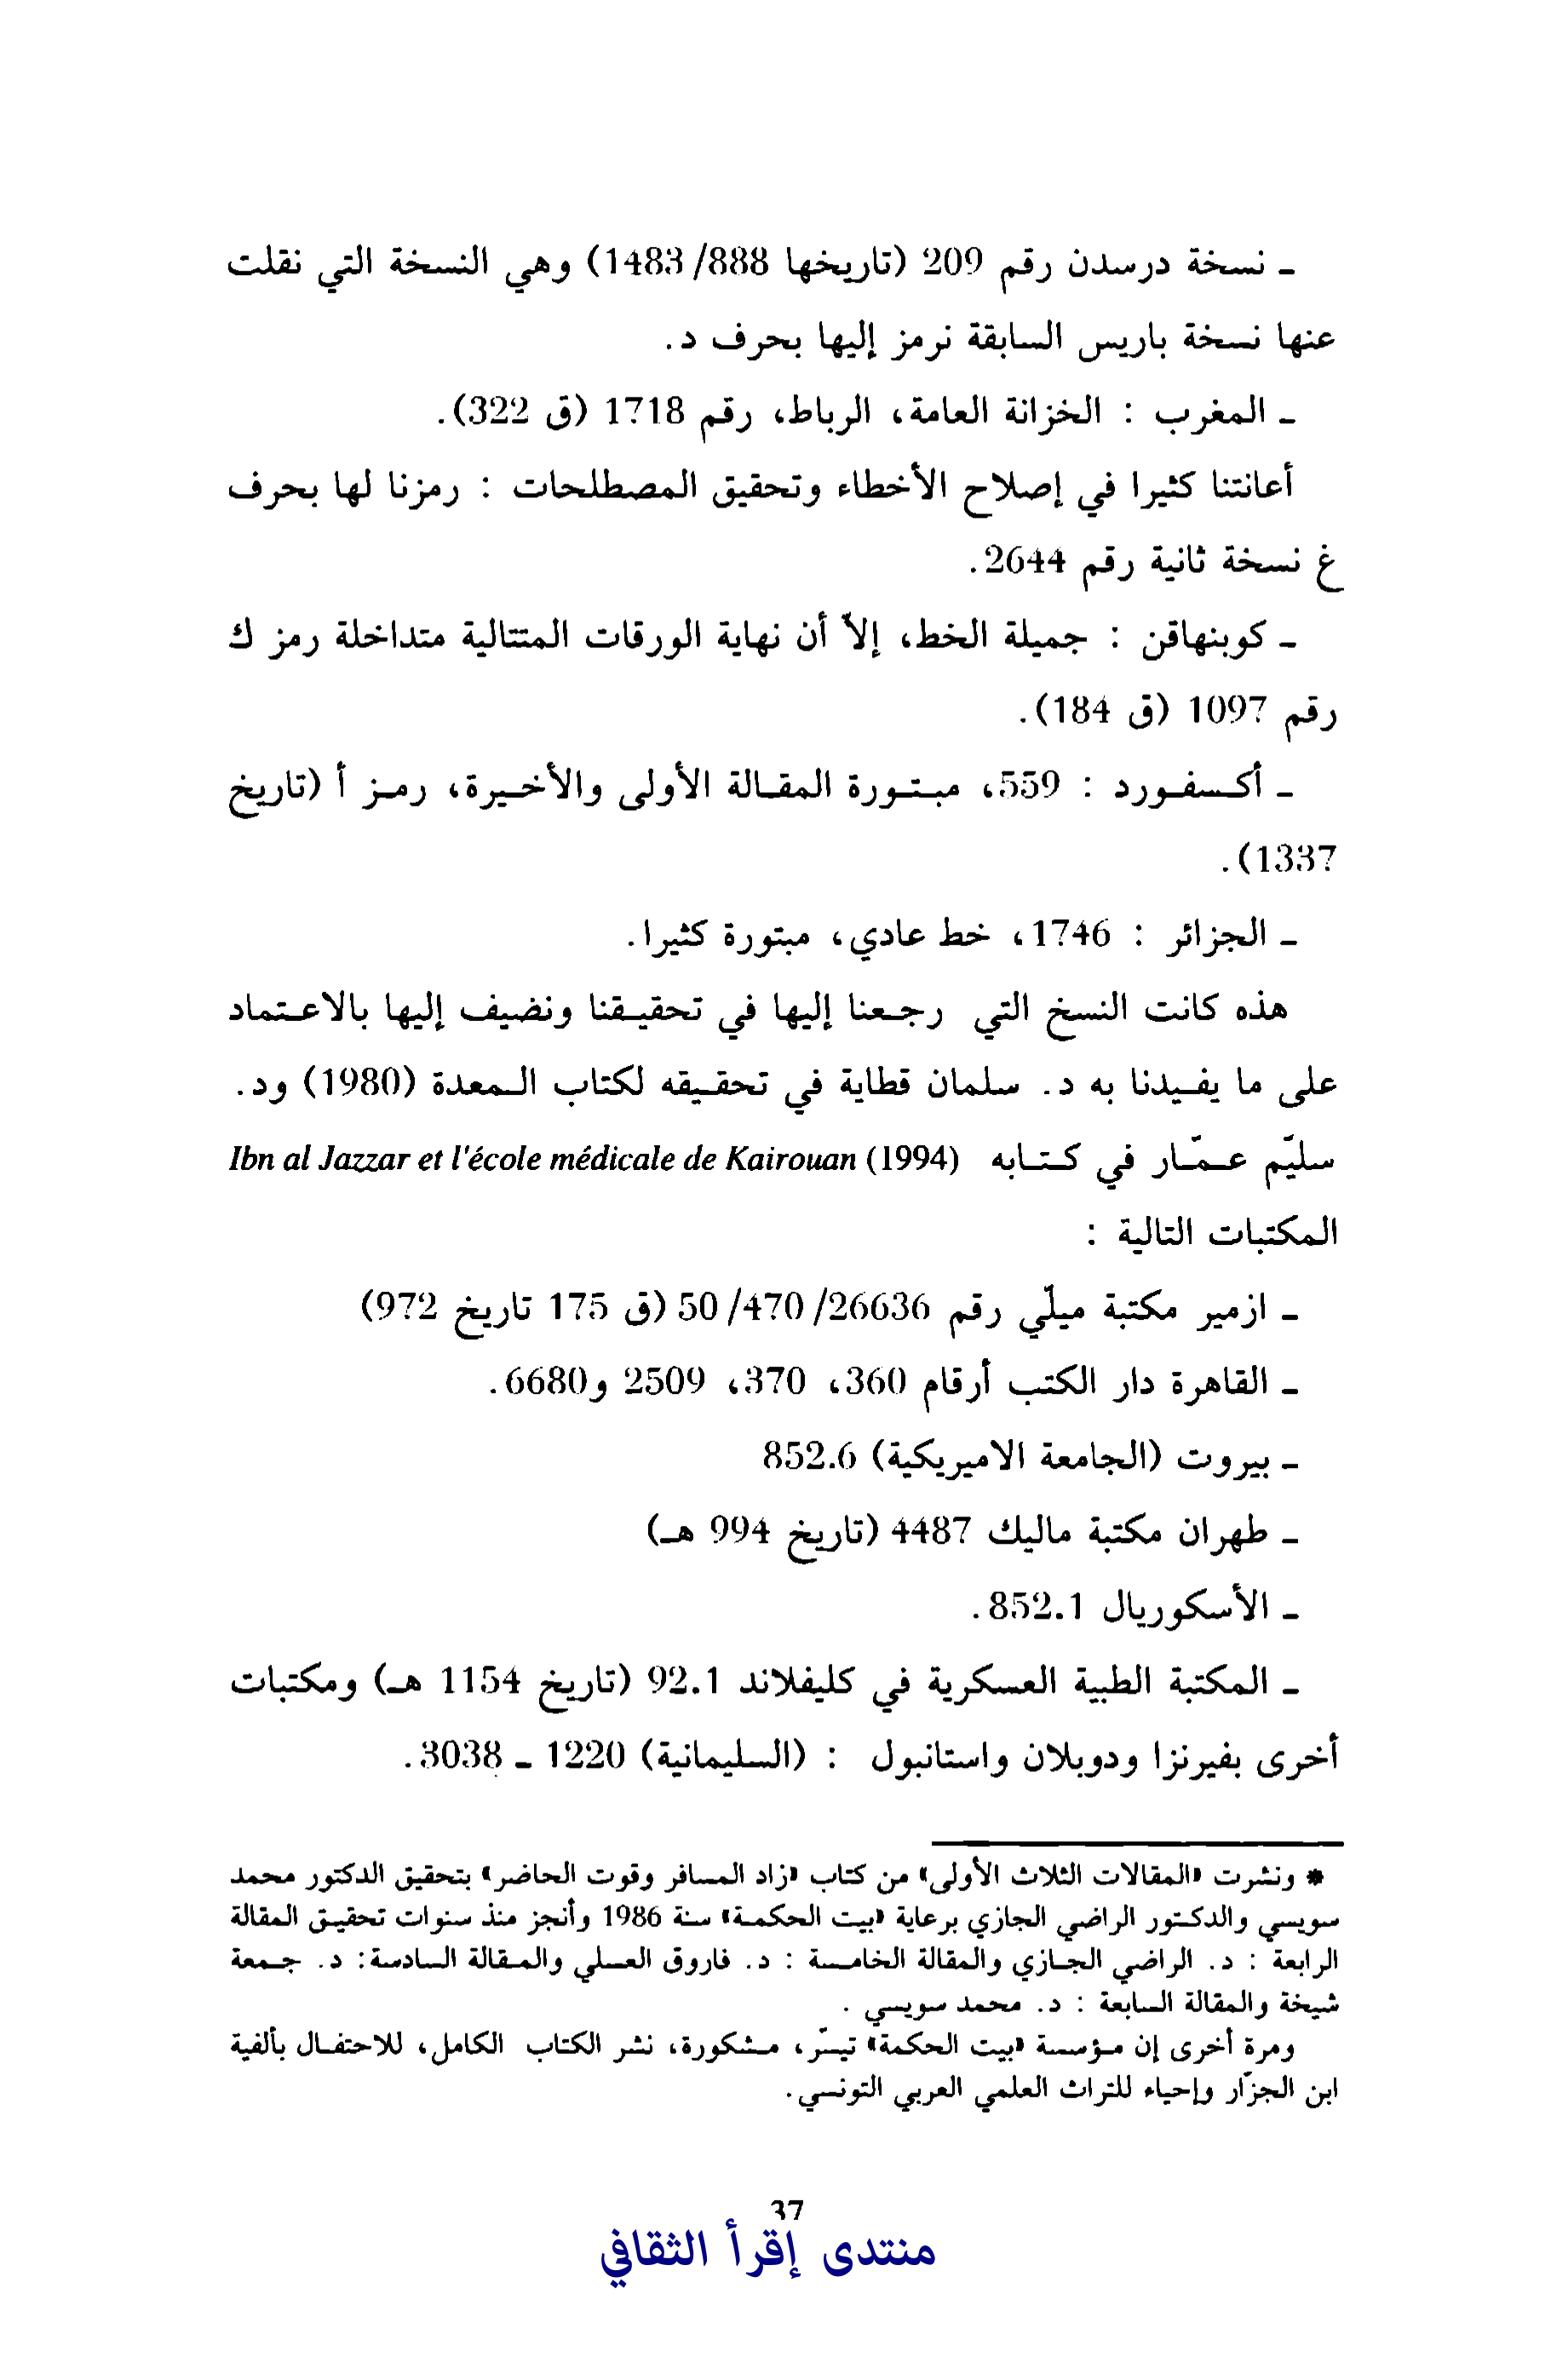 ـ نسخة درسدن رقم 209 (تاريخها 888/ 1483) وهي النسخة التي نقلت
عنها نسخة باريس السابقة نرمز إليها بحرف د.
ـ المغرب : الخزانة العامة، الرباط، رقم 1718 (ق 322).
أعانتنا كثيرا في إصلاح الأخطاء وتحقيق المصطلحات : رمزنا لها بحرف
غ نسخة ثانية رقم 2644.
ـ كوبنهاقن : جميلة الخط، إلاّ أن نهاية الورقات المتتالية متداخلة رمز ك
رقم 1097 (ق 184).
ـ أكسفورد : 559، مبتورة المقالة الأولى والأخيرة، رمز أ (تاريخ
1337).
ـ الجزائر : 1746، خط عادي، مبتورة كثيرا.
هذه كانت النسخ التي رجعنا إليها في تحقيقنا ونضيف إليها بالاعتماد
على ما يفيدنا به د. سلمان قطاية في تحقيقه لكتاب المعدة (1980) ود.
سليّم عمّار في كتابه Ibn al Jazzar et l'école médicale de Kairouan (1994)
المكتبات التالية :
ـ ازمير مكتبة ميلّي رقم 26636/ 470/ 50 (ق 175 تاريخ 972)
ـ القاهرة دار الكتب أرقام 360، 370، 2509 و6680.
ـ بيروت (الجامعة الاميريكية) 852.6
ـ طهران مكتبة ماليك 4487 (تاريخ 994 هـ)
ـ الأسكوريال 852.1.
ـ المكتبة الطبية العسكرية في كليفلاند 92.1 (تاريخ 1154 هـ) ومكتبات
أخرى بفيرنزا ودوبلان واستانبول : (السليمانية) 1220 ـ 3038.
* ونشرت «المقالات الثلاث الأولى» من كتاب «زاد المسافر وقوت الحاضر» بتحقيق الدكتور محمد
سويسي والدكتور الراضي الجازي برعاية «بيت الحكمة» سنة 1986 وأنجز منذ سنوات تحقيق المقالة
الرابعة : د. الراضي الجازي والمقالة الخامسة : د. فاروق العسلي والمقالة السادسة: د. جمعة
شيخة والمقالة السابعة : د. محمد سويسي .
ومرة أخرى إن مؤسسة «بيت الحكمة» تيسّر، مشكورة، نشر الكتاب الكامل، للاحتفال بألفية
ابن الجزّار وإحياء للتراث العلمي العربي التونسي.
37
منتدى إقرأ الثقافي